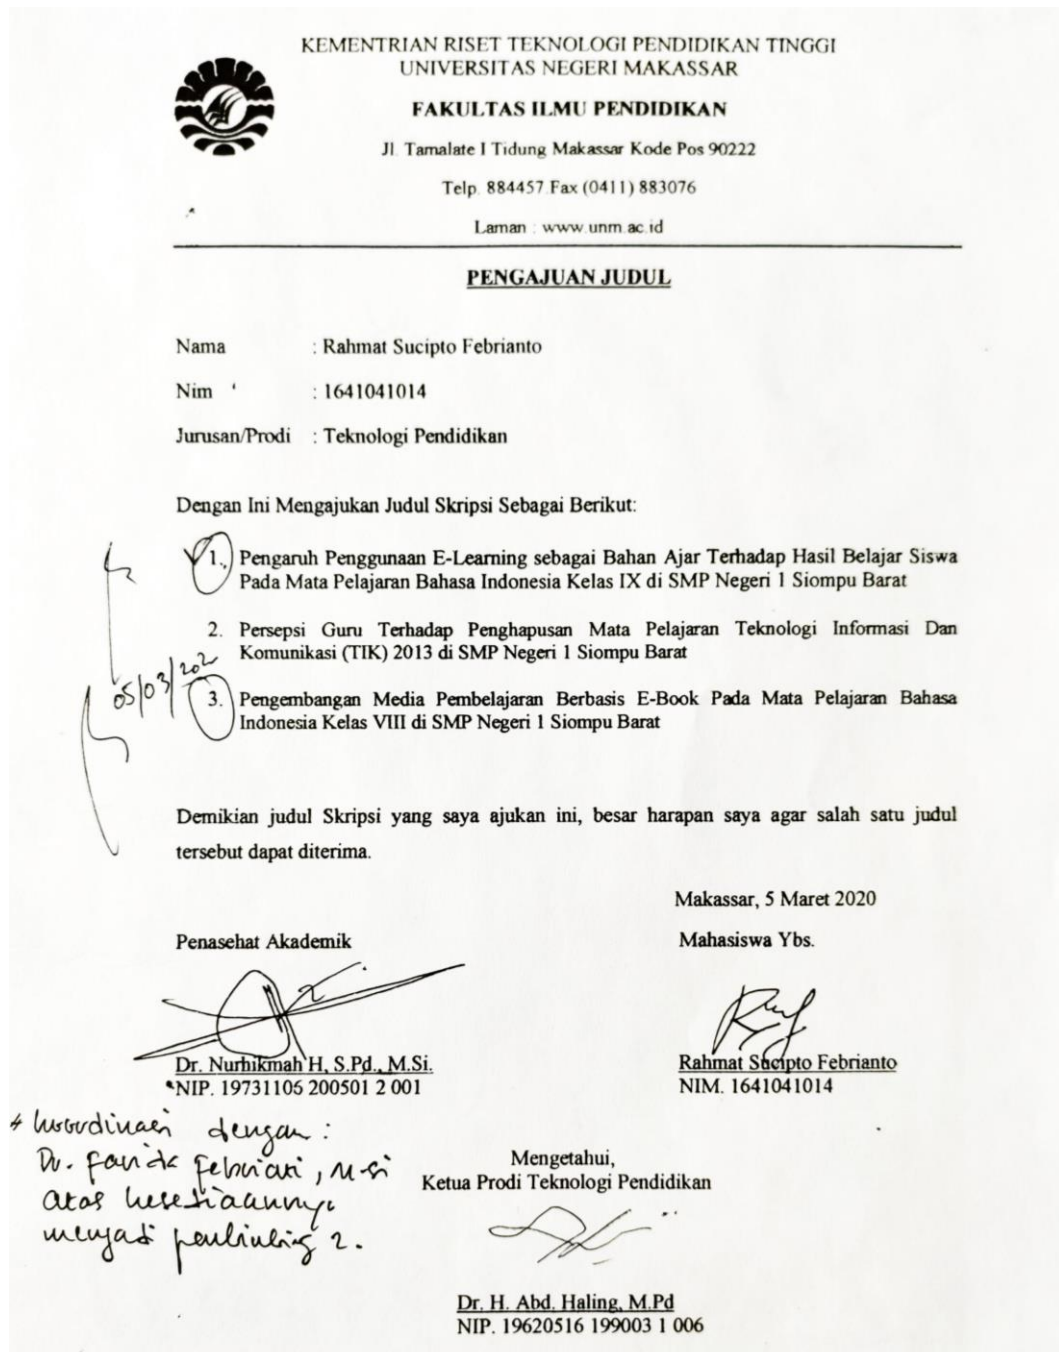 KEMENTRIAN RISET TEKNOLOGI PENDIDIKAN TINGGI
UNIVERSITAS NEGERI MAKASSAR
FAKULTAS ILMU PENDIDIKAN
Jl. Tamalate I Tidung Makassar Kode Pos 90222
Telp. 884457 Fax (0411) 883076
Laman : www.unm.ac.id
PENGAJUAN JUDUL
Nama : Rahmat Sucipto Febrianto
Nim : 1641041014
Jurusan/Prodi : Teknologi Pendidikan
Dengan Ini Mengajukan Judul Skripsi Sebagai Berikut:
1. Pengaruh Penggunaan E-Learning sebagai Bahan Ajar Terhadap Hasil Belajar Siswa
Pada Mata Pelajaran Bahasa Indonesia Kelas IX di SMP Negeri 1 Siompu Barat
2. Persepsi Guru Terhadap Penghapusan Mata Pelajaran Teknologi Informasi Dan
Komunikasi (TIK) 2013 di SMP Negeri 1 Siompu Barat
05/03/202
3. Pengembangan Media Pembelajaran Berbasis E-Book Pada Mata Pelajaran Bahasa
Indonesia Kelas VIII di SMP Negeri 1 Siompu Barat
Demikian judul Skripsi yang saya ajukan ini, besar harapan saya agar salah satu judul
tersebut dapat diterima.
Makassar, 5 Maret 2020
Penasehat Akademik
Mahasiswa Ybs.
Dr. Nurhikmah H, S.Pd., M.Si.
NIP. 19731105 200501 2 001
Rahmat Sucipto Febrianto
NIM. 1641041014
* koordinasi dengan :
Dr. Farida Febriati, M.si
atas kesediaannya
menjadi pembimbing 2.
Mengetahui,
Ketua Prodi Teknologi Pendidikan
Dr. H. Abd. Haling, M.Pd
NIP. 19620516 199003 1 006